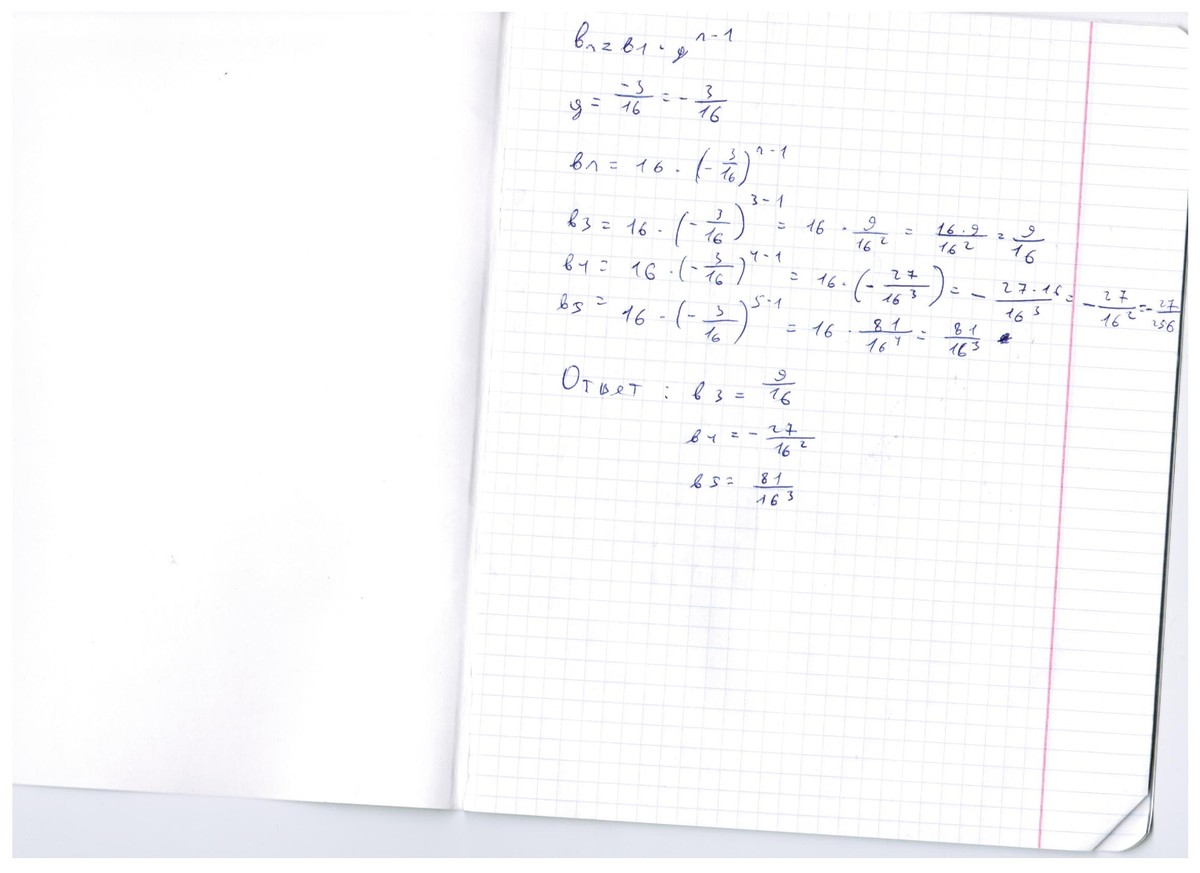 вn = в1 · g^(n-1)
g = -3/16 = -3/16
вn = 16 · (-3/16)^(n-1)
в3 = 16 · (-3/16)^(3-1) = 16 · 9/16² = 16·9/16² = 9/16
в4 = 16 · (-3/16)^(4-1) = 16 · (-27/16³) = -27·16/16³ = -27/16² = -27/256
в5 = 16 · (-3/16)^(5-1) = 16 · 81/16⁴ = 81/16³
Ответ : в3 = 9/16
в4 = -27/16²
в5 = 81/16³